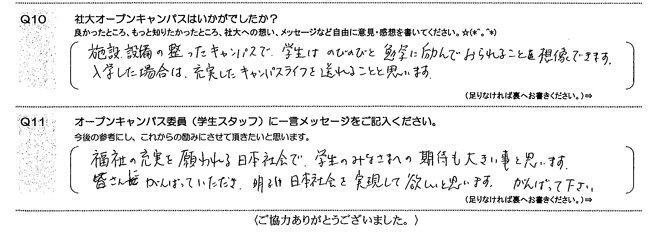 Q10 社大オープンキャンパスはいかがでしたか？
良かったところ、もっと知りたかったところ、社大への想い、メッセージなど自由に意見・感想を書いてください。☆(*^｡^*)
施設設備の整ったキャンパスで、学生はのびのびと勉学に励んでおられることを想像できます。
入学した場合は、充実したキャンパスライフを送れることと思います。
（足りなければ裏へお書きください。）⇒
Q11 オープンキャンパス委員（学生スタッフ）に一言メッセージをご記入ください。
今後の参考にし、これからの励みにさせて頂きたいと思います。
福祉の充実を願われる日本社会で、学生のみなさまへの期待も大きい事と思います。
皆さん がんばっていただき、明るい日本社会を実現して欲しいと思います。 がんばって下さい。
（足りなければ裏へお書きください。）⇒
〈ご協力ありがとうございました。〉